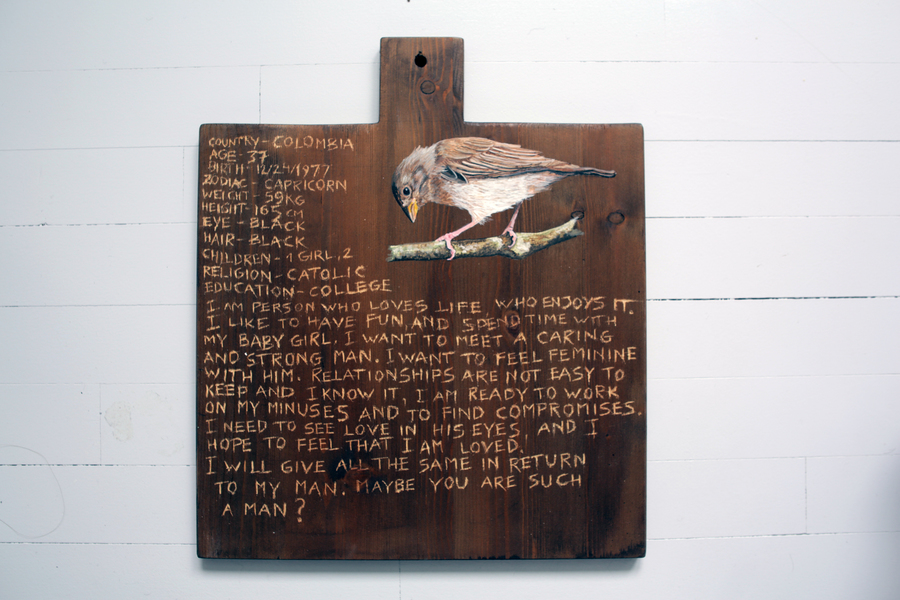 COUNTRY - COLOMBIA
AGE - 37
BIRTH - 12/24/1977
ZODIAC - CAPRICORN
WEIGHT - 59KG
HEIGHT - 165 CM
EYE - BLACK
HAIR - BLACK
CHILDREN - 1 GIRL, 2
RELIGION - CATOLIC
EDUCATION - COLLEGE
I AM PERSON WHO LOVES LIFE, WHO ENJOYS IT.
I LIKE TO HAVE FUN, AND SPEND TIME WITH
MY BABY GIRL. I WANT TO MEET A CARING
AND STRONG MAN. I WANT TO FEEL FEMININE
WITH HIM. RELATIONSHIPS ARE NOT EASY TO
KEEP AND I KNOW IT, I AM READY TO WORK
ON MY MINUSES AND TO FIND COMPROMISES.
I NEED TO SEE LOVE IN HIS EYES, AND I
HOPE TO FEEL THAT I AM LOVED.
I WILL GIVE ALL THE SAME IN RETURN
TO MY MAN. MAYBE YOU ARE SUCH
A MAN?